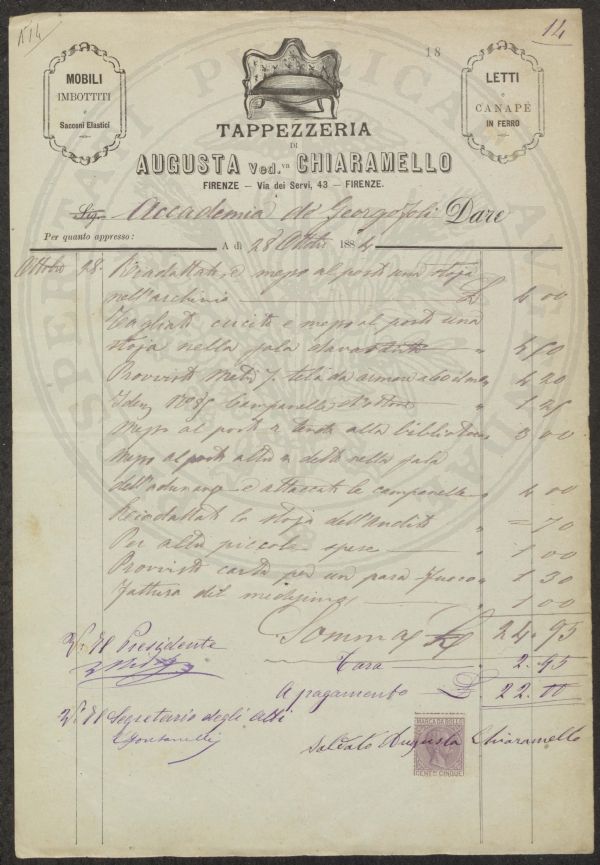 A14
14
18
MOBILI
IMBOTTITI
e
Sacconi Elastici
LETTI
e
CANAPÈ
IN FERRO
TAPPEZZERIA
DI
AUGUSTA Ved.va CHIARAMELLO
FIRENZE – Via dei Servi, 43 – FIRENZE.
Sig. Accademia de' Georgofoli Dare
Per quanto appresso:
A dì 28 Ottobre 1884
Ottobre 28. Riadattata, e messo al posto una stoja
nell'archivio £ 4 00
Tagliati cucito e messo al posto una
stoja nella sala davanti " 4 50
Provvisto Metri 7. tela da a 60 il me 4 20
Idem No 25 Campanelle d'Ottone " 1 25
Messo al posto 2 tende alla biblioteca 3 00
Messo al posto altre 2 dette nella sala
dell'adunanze e attaccate le campanelle " 4 00
Riadattato la stoja dell'Andito " = 70
Per altre piccole spese " 1 00
Provvisto carta per un para fuoco " 1 30
Fattura del medesimo " 1 00
Somma £ 24.95
Tara " 2.95
A pagamento £. 22.00
V. Il Presidente
V. Il Segretario degli Atti
Saldato Augusta Chiaramello
MARCA DA BOLLO
CENT. CINQUE